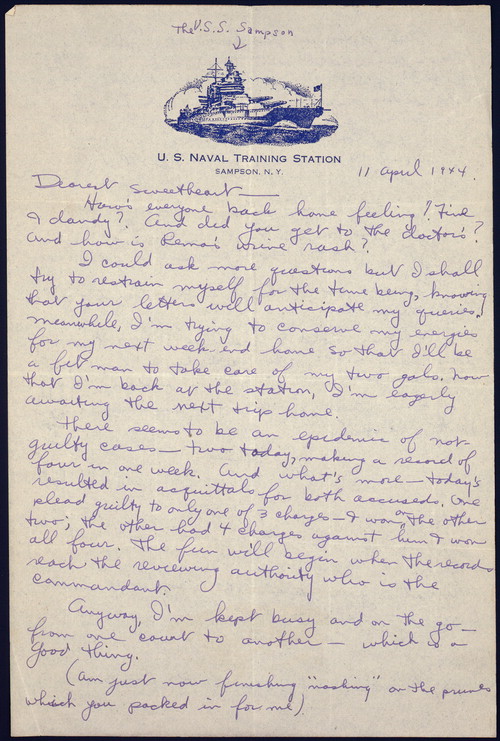 The U.S.S. Sampson
U. S. NAVAL TRAINING STATION
SAMPSON, N.Y.
11 April 1944.
Dearest Sweetheart —
How's everyone back home feeling? Fine
& dandy? And did you get to the doctor's?
And how is Rena's urine rash?
I could ask more questions but I shall
try to restrain myself for the time being, knowing
that your letters will anticipate my queries.
Meanwhile, I'm trying to conserve my energies
for my next week end home so that I'll be
a fit man to take care of my two gals. Now
that I'm back at the station, I'm eagerly
awaiting the next trip home.
There seems to be an epidemic of not-
guilty cases — two today, making a record of
four in one week. And what's more — today's
resulted in acquittals for both accuseds. One
plead guilty to only one of 3 charges — I won on the other
two; the other had 4 charges against him & I won
all four. The fun will begin when the records
reach the reviewing authority who is the
commandant.
Anyway, I'm kept busy and on the go —
from one court to another — which is a
good thing.
(Am just now finishing "noshing" on the prunes
which you packed in for me).